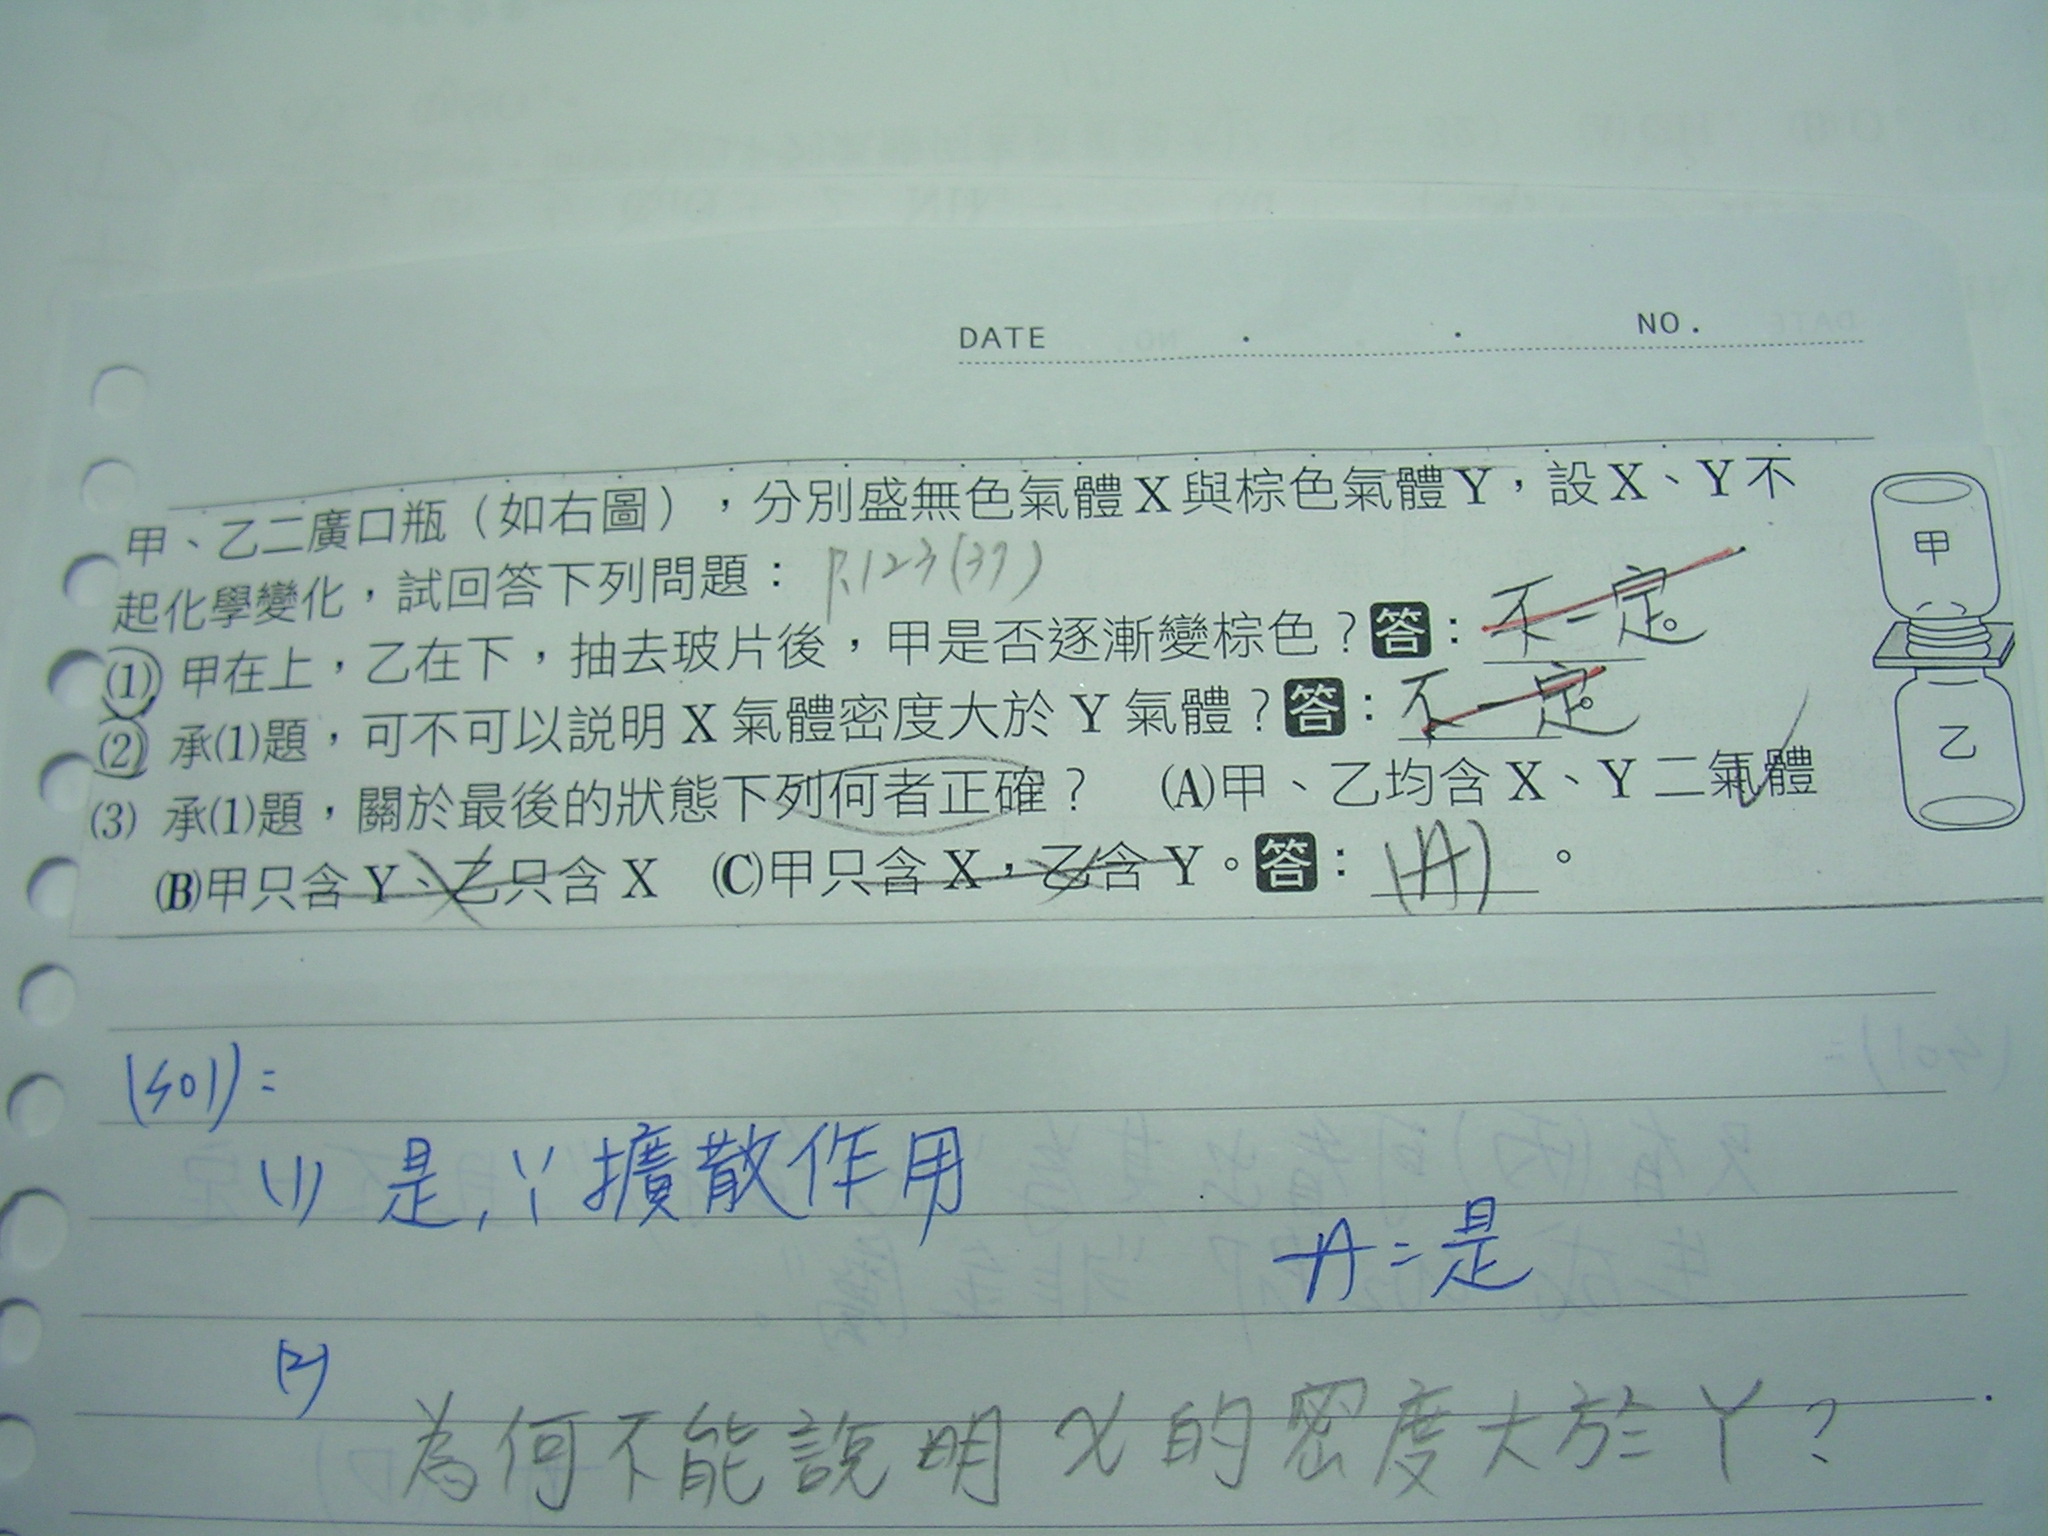 DATE . . NO.
甲、乙二廣口瓶（如右圖），分別盛無色氣體X與棕色氣體Y，設X、Y不
起化學變化，試回答下列問題： P.123(37)
(1) 甲在上，乙在下，抽去玻片後，甲是否逐漸變棕色？答：不一定。
(2) 承(1)題，可不可以説明 X 氣體密度大於 Y 氣體？答：不一定。
(3) 承(1)題，關於最後的狀態下列何者正確？ (A)甲、乙均含 X、Y 二氣體
(B)甲只含 Y、乙只含 X (C)甲只含 X，乙含 Y。答：(A)。
甲
乙
(sol)=
(1) 是, ∵擴散作用
A=是
(2)
為何不能說明 X 的密度大於 Y？